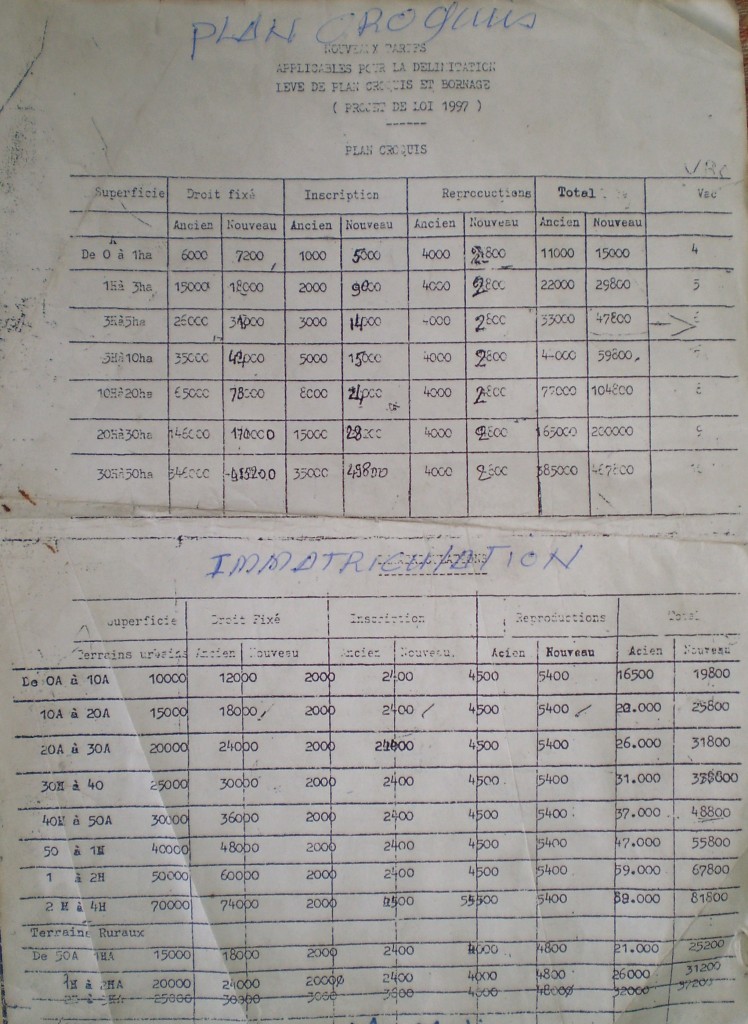 PLAN CROQUIS
NOUVEAUX TARIFS
APPLICABLES POUR LA DELIMITATION
LEVE DE PLAN CROQUIS ET BORNAGE
( PROJET DE LOI 1997 )
PLAN CROQUIS
Superficie Droit fixé Inscription Reproductions Total Vac
Ancien Nouveau Ancien Nouveau Ancien Nouveau Ancien Nouveau
De 0 à 1ha 6000 7200 1000 5000 4000 2800 11000 15000 4
1Hà 3ha 15000 18000 2000 9000 4000 2800 22000 29800 5
3Hà5ha 3000 14000 4000 2800 33000 47800
5Hà10ha 35000 42000 5000 15000 4000 2800 59800
10Hà20ha 65000 78000 8000 4000 2800 77000 104800
20Hà30ha 170000 15000 4000 2800 165000 200000 9
30Hà50ha 346000 35000 49800 4000 2800 385000 467800
IMMATRICULATION
Superficie Droit Fixé Inscription Reproductions Total
Terrains urbains Ancien Nouveau Ancien Nouveau Acien Nouveau Acien Nouveau
De 0A à 10A 10000 12000 2000 2400 4500 5400 16500 19800
10A à 20A 15000 18000 2000 2400 4500 5400 25800
20A à 30A 20000 24000 2000 4500 5400 26.000 31800
30H à 40 25000 30000 2000 2400 4500 5400 31.000
40H à 50A 30000 36000 2000 2400 4500 5400 37.000 48800
50 à 1H 40000 48000 2000 2400 4500 5400 47.000 55800
1 à 2H 50000 60000 2000 2400 4500 5400 59.000 67800
2 H à 4H 70000 74000 2000 5400 81800
Terrains Ruraux
De 50A 1HA 15000 18000 2000 2400 4000 4800 21.000 25200
1H à 2HA 20000 24000 2400 4000 4800 26000 31200
25000 32000 37200